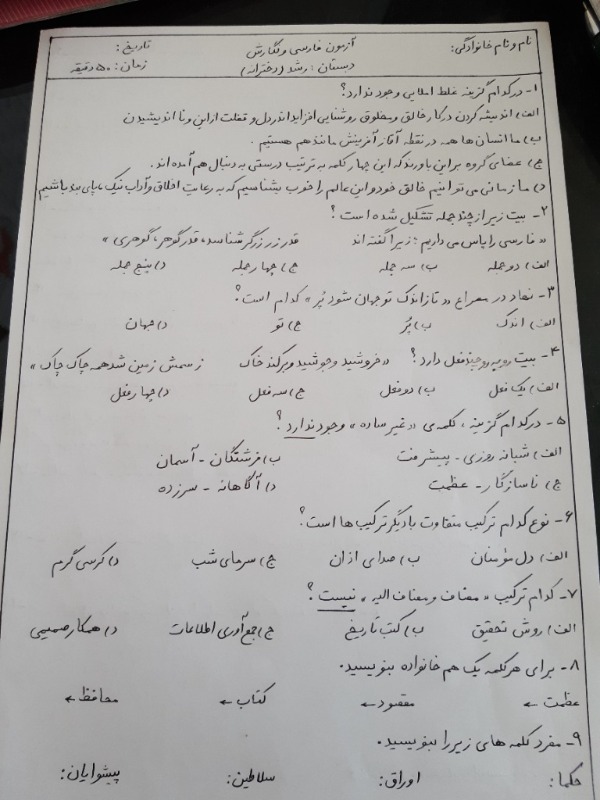 نام و نام خانوادگی: آزمون فارسی و نگارش تاریخ:
دبستان: رشد (دخترانه) زمان: ۵۰ دقیقه
۱- در کدام گزینه غلط املایی وجود ندارد؟
الف) اندیشه کردن در کار خالق و مخلوق روشنایی افزاید اندر دل و غفلت از این و نا اندیشیدن
ب) ما انسان‌ها همه در نقطه آغاز آفرینش مانند هم هستیم.
ج) عضای گروه بر این باورند که این چهار کلمه به ترتیب درستی به دنبال هم آمده اند.
د) ما زمانی می توانیم خالق خود و این عالم را خوب بشناسیم که به رعایت اخلاق و آداب نیک، پای بند باشیم
۲- بیت زیر از چند جمله تشکیل شده است؟
« فارسی را پاس می داریم؛ زیرا گفته اند قدر زر زرگر شناسد، قدر گوهر، گوهری »
الف) دو جمله ب) سه جمله ج) چهار جمله د) پنج جمله
۳- نهاد در مصراع « تا ز اندک تو جهان شود پُر » کدام است؟
الف) اندک ب) پُر ج) تو د) جهان
۴- بیت روبه رو چند فعل دارد؟ « خروشید و جوشید و برکند خاک ز سمش زمین شد همه چاک چاک »
الف) یک فعل ب) دو فعل ج) سه فعل د) چهار فعل
۵- در کدام گزینه، کلمه ی « غیر ساده » وجود ندارد؟
الف) شبانه روزی - پیشرفت ب) فرشتگان - آسمان
ج) ناسازگار - عظمت د) آگاهانه - سرزده
۶- نوع کدام ترکیب متفاوت با دیگر ترکیب ها است؟
الف) دل مؤمنان ب) صدای اذان ج) سرمای شب د) کرسی گرم
۷- کدام ترکیب « مضاف و مضاف الیه » نیست؟
الف) روش تحقیق ب) کتب تاریخ ج) جمع آوری اطلاعات د) همکار صمیمی
۸- برای هر کلمه یک هم خانواده بنویسید.
عظمت ← مقصود ← کتاب ← محافظ ←
۹- مفرد کلمه های زیر را بنویسید.
حکما: اوراق: سلاطین: پیشوایان: